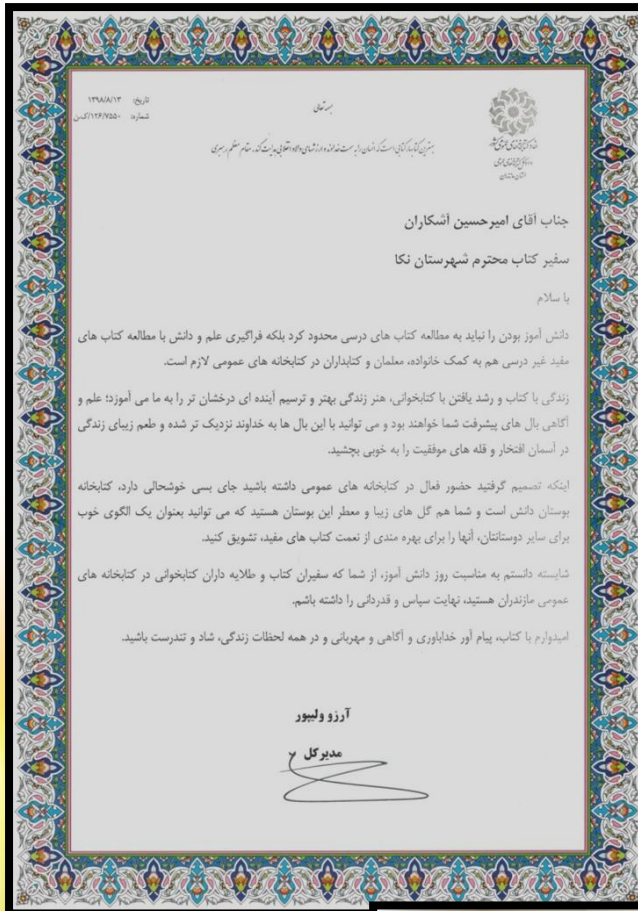 بسمه تعالی
تاریخ: ۱۳۹۸/۸/۱۳
شماره: ۱۲۶/۷۵۵۰/ک.ن
نهاد کتابخانه‌های عمومی کشور
اداره کل کتابخانه‌های عمومی
استان مازندران
بهترین کتابها، کتابی است که انسان را به سمت خدا بوده و ارزشهای والا و انقلابی هدایت کند. مقام معظم رهبری
جناب آقای امیرحسین آشکاران
سفیر کتاب محترم شهرستان نکا
با سلام
دانش آموز بودن را نباید به مطالعه کتاب های درسی محدود کرد بلکه فراگیری علم و دانش با مطالعه کتاب های
مفید غیر درسی هم به کمک خانواده، معلمان و کتابداران در کتابخانه های عمومی لازم است.
زندگی با کتاب و رشد یافتن با کتابخوانی، هنر زندگی بهتر و ترسیم آینده ای درخشان تر را به ما می آموزد؛ علم و
آگاهی بال های پیشرفت شما خواهند بود و می توانید با این بال ها به خداوند نزدیک تر شده و طعم زیبای زندگی
در آسمان افتخار و قله های موفقیت را به خوبی بچشید.
اینکه تصمیم گرفتید حضور فعال در کتابخانه های عمومی داشته باشید جای بسی خوشحالی دارد، کتابخانه
بوستان دانش است و شما هم گل های زیبا و معطر این بوستان هستید که می توانید بعنوان یک الگوی خوب
برای سایر دوستانتان، آنها را برای بهره مندی از نعمت کتاب های مفید، تشویق کنید.
شایسته دانستم به مناسبت روز دانش آموز، از شما که سفیران کتاب و طلایه داران کتابخوانی در کتابخانه های
عمومی مازندران هستید، نهایت سپاس و قدردانی را داشته باشم.
امیدوارم با کتاب، پیام آور خداباوری و آگاهی و مهربانی و در همه لحظات زندگی، شاد و تندرست باشید.
آرزو ولیپور
مدیرکل